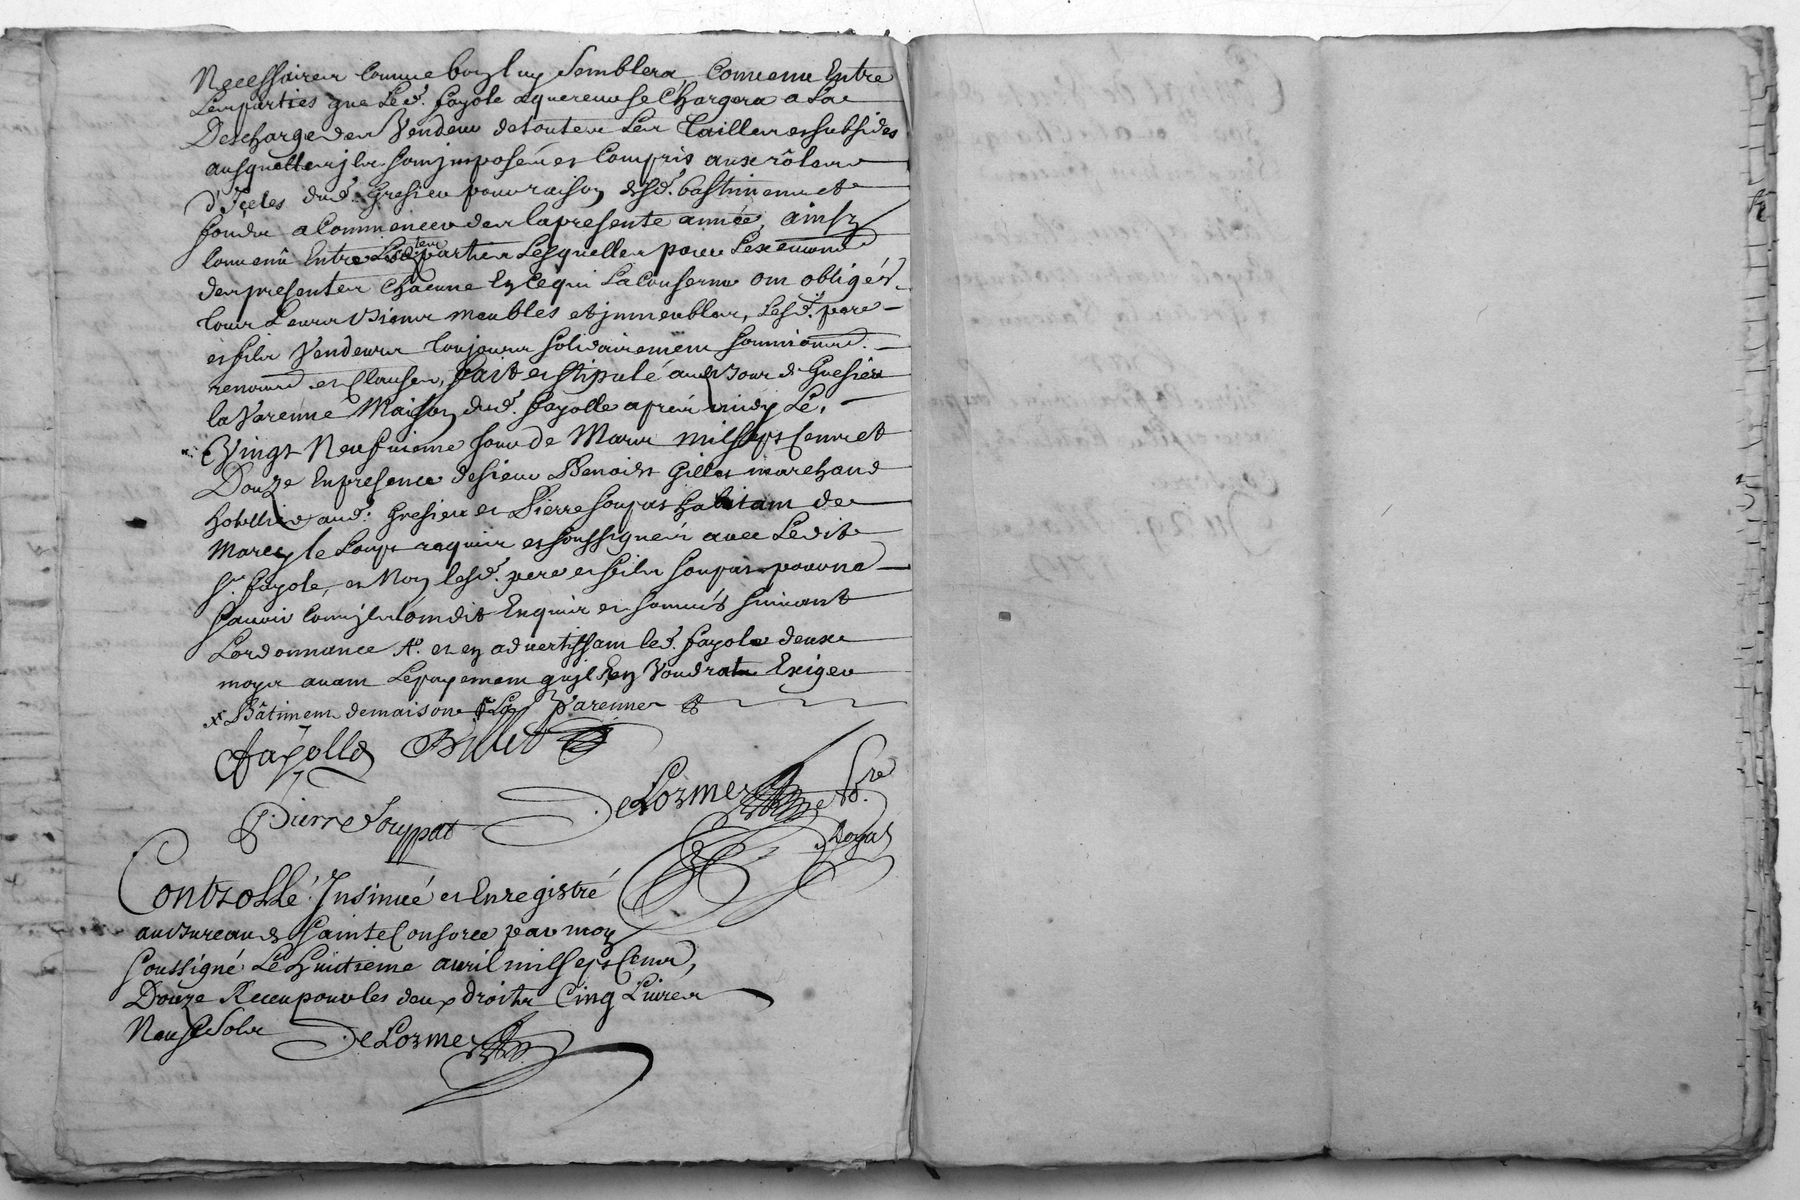 Necessaires comme bon luy Semblera, Convenu Entre
Les parties que Led. fayole aquereur se Chargera a La
Descharge des Vendeurs de toutes Les Tailles et subsides
ausquelles jls sont jmposés et Compris aux rôles
d'Jceles dud. Gresieu pour raison desd. bastiment et
fonds a Commencer des la presente année, ainsy
Convenû Entre Lesd. parties Lesquelles pour L'exécution
des presentes Chacune En Ce qui La Conserne ont obligés
tous Leurs Biens meubles et jmmeubles, Lesd. pere
et fils Vendeurs toujours solidairement soumissions
renon.on et Clauses, fait et stipulé au Bour de Gresieu
la Varenne Maison dud. fayolle apres midy Le
Vingt Neufvieme Jour de Mars mil sept Cent et
Douze En presence de sieur Benoist Gillet marchand
hotellier aud. Gresieu et Pierre Soupat habitant de
Marcy le Loup requis et soussignés avec Ledit
Sr. fayole, et Non lesd. pere et fils Soupat pour ne
sçavoir Comme jls ont dit Enquis et sommés suivant
L'ordonnance Ae. et en advertissant led. fayole deux
moys avant Le payement qu'jl En Voudrat Exiger
x Bâtiment de maison La Varenne
fayolle Billet
Pierre Souppat DeLorme Nre
Royal
Controllé Insinué et Enregistré
au Bureau de Sainte Consorce par moy
soussigné Le huitieme avril mil sept Cent
Douze Receu pour les deux droits Cinq Livres
Neuf Sols DeLorme